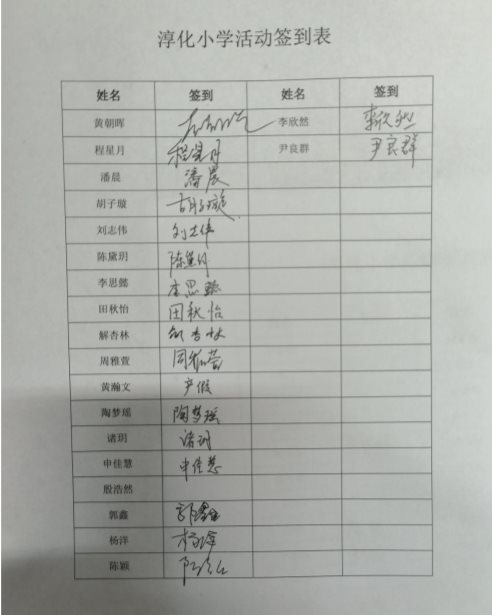 淳化小学活动签到表
姓名 签到 姓名 签到
黄朝晖 李欣然 李欣然
程星月 程星月 尹良群 尹良群
潘晨 潘晨
胡子璇 胡子璇
刘志伟 刘志伟
陈黛玥
李思懿 李思懿
田秋怡 田秋怡
解杏林 解杏林
周雅萱 周雅萱
黄瀚文 产假
陶梦瑶 陶梦瑶
诸玥 诸玥
申佳慧 申佳慧
殷浩然
郭鑫 郭鑫
杨洋
陈颖